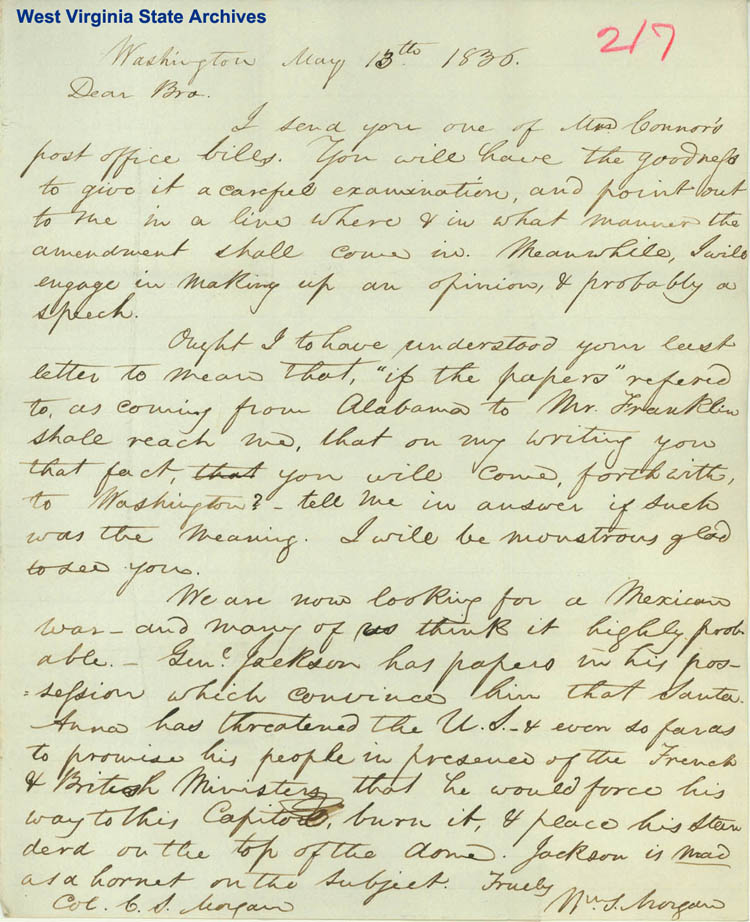 West Virginia State Archives
217
Washington May 13th 1836.
Dear Bro.
I send you one of Connor's
post office bills. You will have the goodness
to give it a careful examination, and point out
to me in a line where & in what manner the
amendment shall come in. Meanwhile, I will
engage in making up an opinion, & probably a
speech.
Ought I to have understood your last
letter to mean that, "if the papers" refered
to, as coming from Alabama to Mr. Franklin
shall reach me, that on my writing you
that fact, that you will come, forthwith,
to Washington? - tell me in answer if such
was the meaning. I will be monstrous glad
to see you.
We are now looking for a Mexican
war - and many of us think it highly prob
able. - Genl. Jackson has papers in his pos-
=session which convince him that Santa
Anna has threatened the U.S. - & even so far as
to promise his people in presence of the French
& British Ministers that he would force his
way to this Capitol, burn it, & place his stan
derd on the top of the dome. Jackson is mad
as a hornet on the subject. Truely
Col. C. S. Morgan Wm. S. Morgan